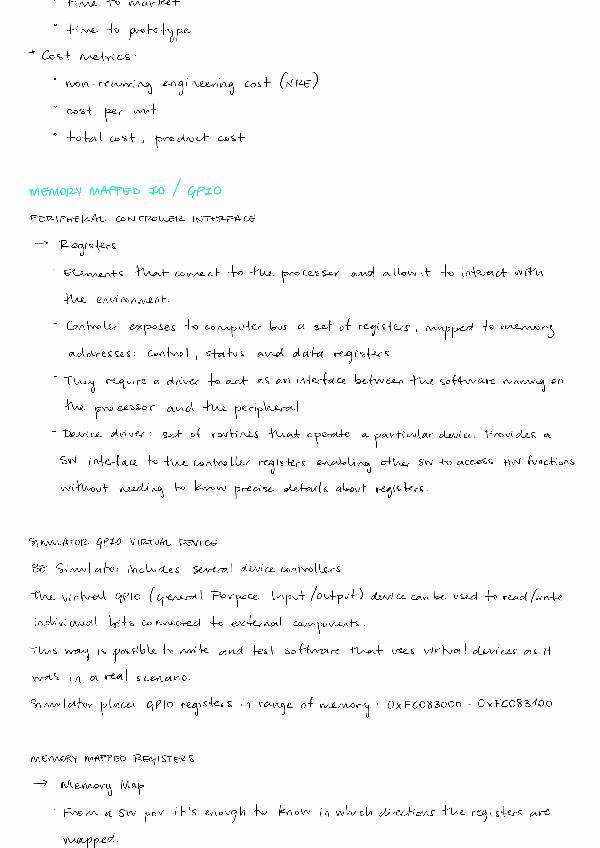 · time to market
· time to prototype
→ Cost metrics:
· non-recurring engineering cost (NRE)
· cost per unit
· total cost, product cost
MEMORY MAPPED IO / GPIO
PERIPHERAL CONTROLLER INTERFACE
→ Registers
· Elements that connect to the processor and allow it to interact with
the environment.
- Controller exposes to computer bus a set of registers, mapped to memory
addresses: control, status and data registers
- They require a driver to act as an interface between the software running on
the processor and the peripheral
- Device driver: set of routines that operate a particular device. Provides a
SW interface to the controller registers enabling other SW to access HW functions
without needing to know precise details about registers.
SIMULATOR GPIO VIRTUAL DEVICE
Simulator includes several device controllers
The virtual GPIO (General Porpoce Input/output) device can be used to read/write
individual bits connected to external components.
This way is possible to write and test software that uses virtual devices as it
was in a real scenario.
Simulator places GPIO registers in range of memory: 0xFC083000 - 0xFC083100
MEMORY MAPPED REGISTERS
→ Memory Map
· From a SW pov it's enough to know in which directions the registers are
mapped.